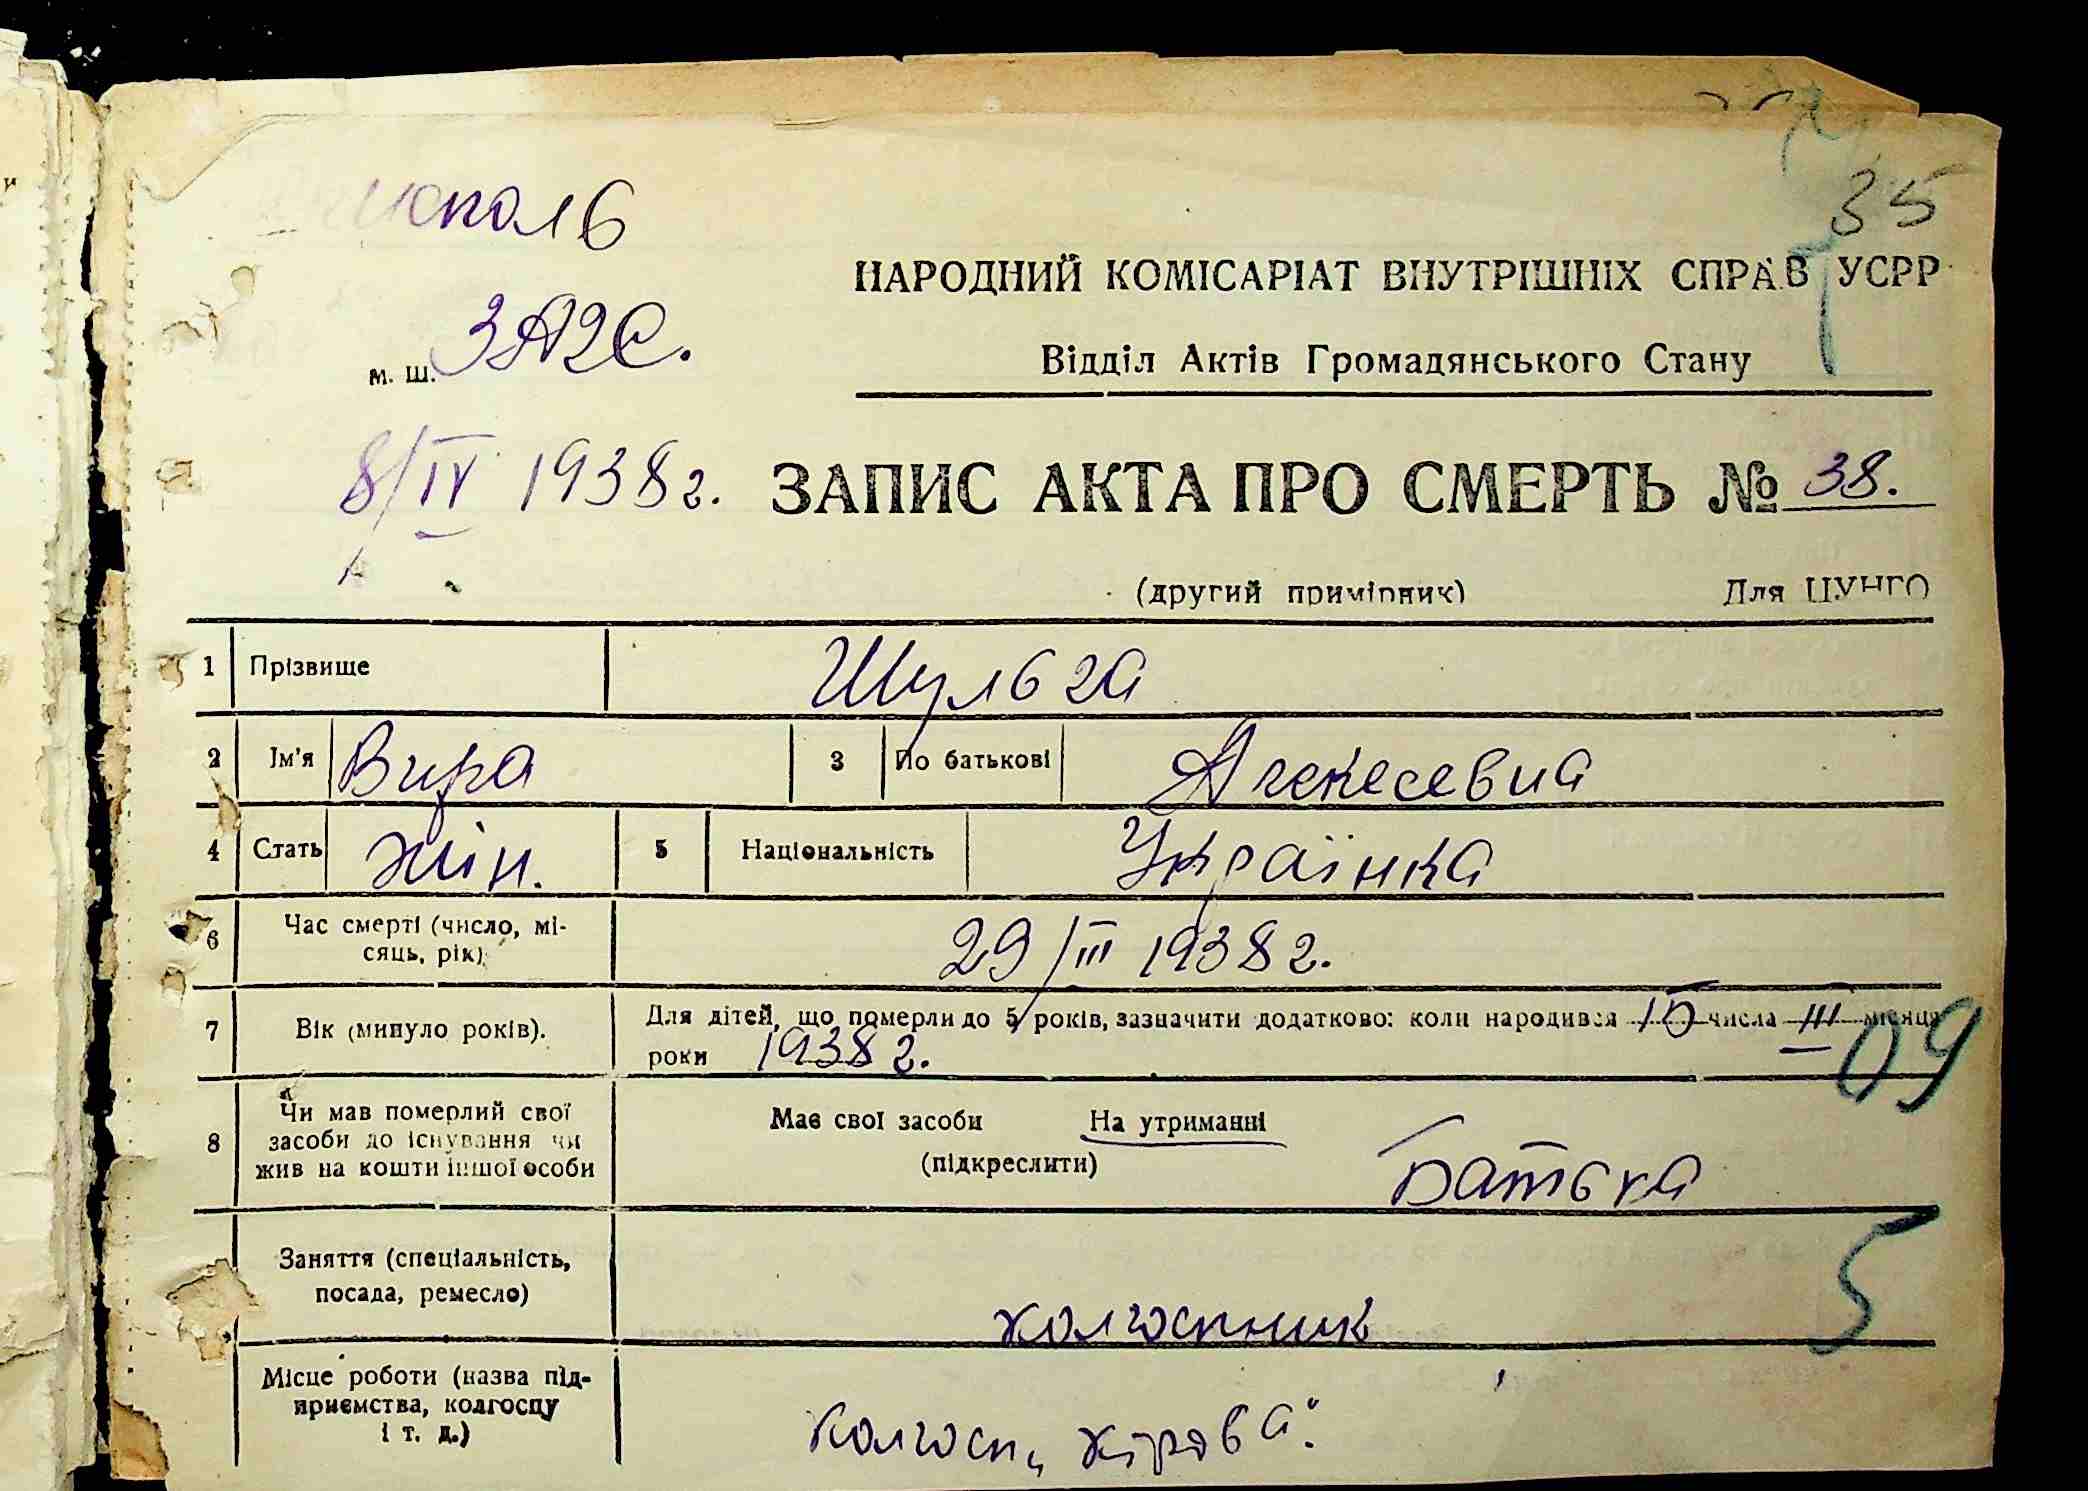 35
НАРОДНИЙ КОМІСАРІАТ ВНУТРІШНІХ СПРАВ УСРР
Відділ Актів Громадянського Стану
м. ш. ЗАГС.
8/IV 1938 г. ЗАПИС АКТА ПРО СМЕРТЬ № 38.
(другий примірник) Для ЦУНГО
1 Прізвище Шульга
2 Ім'я Вира 3 По батькові
4 Стать жін. 5 Національність Українка
6 Час смерті (число, мі-
сяць, рік) 29/III 1938 г.
7 Вік (минуло років). Для дітей, що померли до 5 років, зазначити додатково: коли народився 15 числа III місяця
роки 1938 г.
09
8 Чи мав померлий свої
засоби до існування чи
жив на кошти іншої особи
Має свої засоби На утриманні
(підкреслити)
Батька
Заняття (спеціальність,
посада, ремесло)
колгоспник
5
Місце роботи (назва під-
приємства, колгоспу
і т. д.)
колгосп „Кірова"